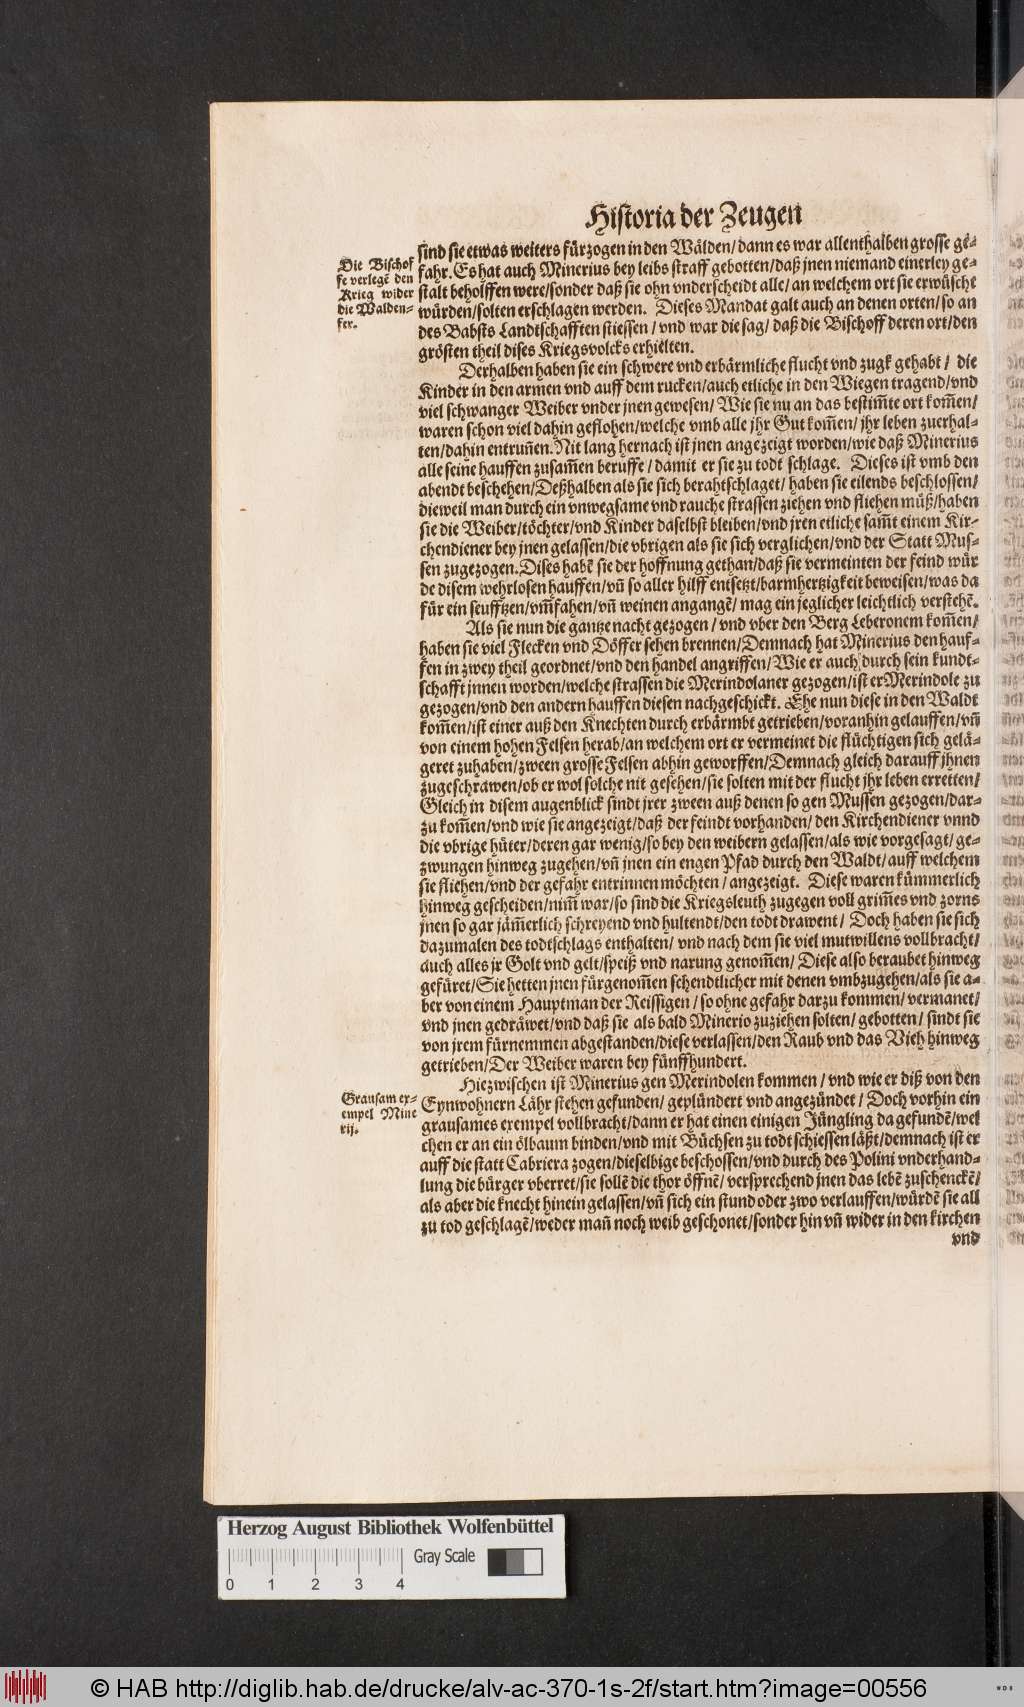 Historia der Zeugen
sind sie etwas weiters fürzogen in den Wälden/ dann es war allenthalben grosse ge-
Die Bischof
fe verlegē den
Krieg wider
die Walden-
ser.
fahr. Es hat auch Minerius bey leibs straff gebotten/ daß jnen niemand einerley ge-
stalt beholffen were/ sonder daß sie ohn vnderscheidt alle/ an welchem ort sie erwüscht
würden/ solten erschlagen werden. Dieses Mandat galt auch an denen orten/ so an
des Babsts Landtschafften stiessen/ vnd war die sag/ daß die Bischoff deren ort/ den
grösten theil dises Kriegsvolcks erhielten.
Derhalben haben sie ein schwere vnd erbärmliche flucht vnd zugk gehabt/ die
Kinder in den armen vnd auff dem rucken/ auch etliche in den Wiegen tragend/ vnd
viel schwanger Weiber vnder jnen gewesen/ Wie sie nu an das bestim̄te ort kom̄en/
waren schon viel dahin geflohen/ welche vmb alle jhr Gut kom̄en/ jhr leben zuerhal-
ten/ dahin entrun̄en. Nit lang hernach ist jnen angezeigt worden/ wie daß Minerius
alle seine hauffen zusam̄en beruffe/ damit er sie zu todt schlage. Dieses ist vmb den
abendt beschehen/ Deßhalben als sie sich berahtschlaget/ haben sie eilends beschlossen/
dieweil man durch ein vnwegsame vnd rauche strassen ziehen vnd fliehen müß/ haben
sie die Weiber/ töchter/ vnd Kinder daselbst bleiben/ vnd jren etliche sam̄t einem Kir-
chendiener bey jnen gelassen/ die vbrigen als sie sich verglichen/ vnd der Statt Mus-
sen zugezogen. Dises habē sie der hoffnung gethan/ daß sie vermeinten der feind wür
de disem wehrlosen hauffen/ vn̄ so aller hilff entsetzt/ barmhertzigkeit beweisen/ was da
für ein seufftzen/ vm̄fahen/ vn̄ weinen angangē/ mag ein jeglicher leichtlich verstehē.
Als sie nun die gantze nacht gezogen/ vnd vber den Berg Leberonem kom̄en/
haben sie viel Flecken vnd Döffer sehen brennen/ Demnach hat Minerius den hauf-
fen in zwey theil geordnet/ vnd den handel angriffen/ Wie er auch durch sein kundt-
schafft jnnen worden/ welche strassen die Merindolaner gezogen/ ist er Merindole zu
gezogen/ vnd den andern hauffen diesen nachgeschickt. Ehe nun diese in den Waldt
kom̄en/ ist einer auß den Knechten durch erbärmbt getrieben/ voranhin gelauffen/ vn̄
von einem hohen Felsen herab/ an welchem ort er vermeinet die flüchtigen sich gelä-
geret zuhaben/ zween grosse Felsen abhin geworffen/ Demnach gleich darauff jhnen
zugeschrawen/ ob er wol solche nit gesehen/ sie solten mit der flucht jhr leben erretten/
Gleich in disem augenblick sindt jrer zween auß denen so gen Mussen gezogen/ dar-
zu kom̄en/ vnd wie sie angezeigt/ daß der feindt vorhanden/ den Kirchendiener vnnd
die vbrige hüter/ deren gar wenig/ so bey den weibern gelassen/ als wie vorgesagt/ ge-
zwungen hinweg zugehen/ vn̄ jnen ein engen Pfad durch den Waldt/ auff welchem
sie fliehen/ vnd der gefahr entrinnen möchten/ angezeigt. Diese waren kümmerlich
hinweg gescheiden/ nim̄ war/ so sind die Kriegsleuth zugegen voll grim̄es vnd zorns
jnen so gar jäm̄erlich schreyend vnd hultendt/ den todt drawent/ Doch haben sie sich
dazumalen des todtschlags enthalten/ vnd nach dem sie viel mutwillens vollbracht/
auch alles jr Golt vnd gelt/ speiß vnd narung genom̄en/ Diese also beraubet hinweg
gefüret/ Sie hetten jnen fürgenom̄en schendtlicher mit denen vmbzugehen/ als sie a-
ber von einem Hauptman der Reissigen/ so ohne gefahr darzu kommen/ vermanet/
vnd jnen gedräwet/ vnd daß sie als bald Minerio zuziehen solten/ gebotten/ sindt sie
von jrem fürnemmen abgestanden/ diese verlassen/ den Raub vnd das Vieh hinweg
getrieben/ Der Weiber waren bey fünffhundert.
Hiezwischen ist Minerius gen Merindolen kommen/ vnd wie er diß von den
Grausam ex-
empel Mine
rij.
Eynwohnern Lähr stehen gefunden/ geplündert vnd angezündet/ Doch vorhin ein
grausames exempel vollbracht/ dann er hat einen einigen Jüngling da gefundē/ wel
chen er an ein ölbaum binden/ vnd mit Büchsen zu todt schiessen läßt/ demnach ist er
auff die statt Cabriera zogen/ dieselbige beschossen/ vnd durch des Polini vnderhand-
lung die bürger vberret/ sie sollē die thor öffnē/ versprechend jnen das lebē zuschenckē/
als aber die knecht hinein gelassen/ vn̄ sich ein stund oder zwo verlauffen/ würdē sie all
zu tod geschlagē/ weder man̄ noch weib geschonet/ sonder hin vn̄ wider in den kirchen
vnd
Herzog August Bibliothek Wolfenbüttel
Gray Scale
0 1 2 3 4
© HAB http://diglib.hab.de/drucke/alv-ac-370-1s-2f/start.htm?image=00556